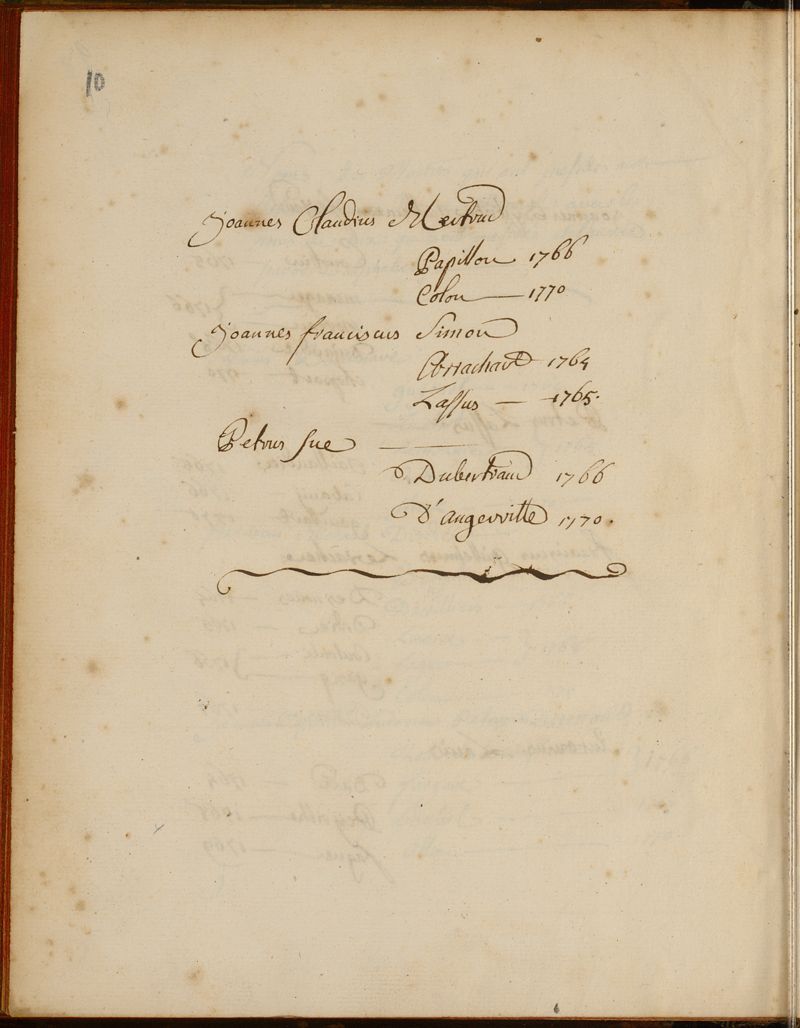 10
Joannes Claudius Mertrud
Papillon 1766
Colon — 1770
Joannes franciscus Simon
Arrachart 1764
Lassus — 1765.
Petrus sue —
Dubertrand 1766
D'angerville 1770.